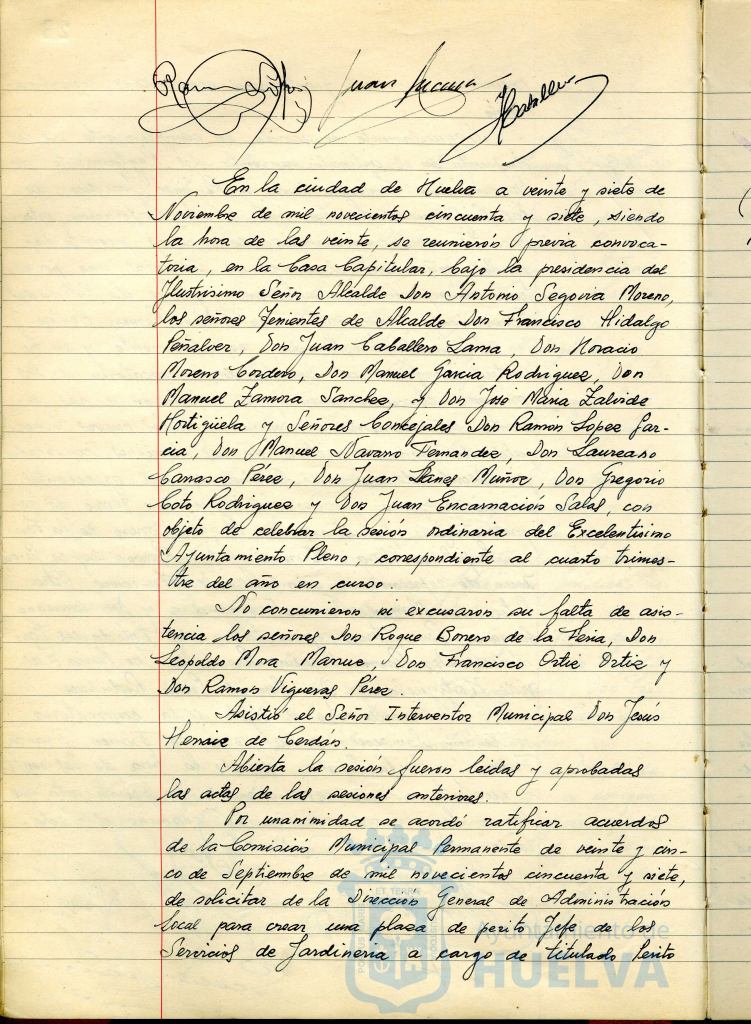 Juan
Caballero
En la ciudad de Huelva a veinte y siete de
Noviembre de mil novecientos cincuenta y siete, siendo
la hora de las veinte, se reunieron previa convoca-
toria, en la Casa Capitular, bajo la presidencia del
Ilustrisimo Señor Alcalde Don Antonio Segovia Moreno,
los señores Tenientes de Alcalde Don Francisco Hidalgo
Peñalver, Don Juan Caballero Lama, Don Horacio
Moreno Cordero, Don Manuel Garcia Rodriguez, Don
Manuel Zamora Sanchez, y Don Jose Maria Zalvide
Hortigüela y Señores Concejales Don Ramón Lopez Gar-
cia, Don Manuel Navarro Fernandez, Don Laureano
Carrasco Pérez, Don Juan Llanes Muñoz, Don Gregorio
Coto Rodriguez y Don Juan Encarnación Salas, con
objeto de celebrar la sesión ordinaria del Excelentisimo
Ayuntamiento Pleno, correspondiente al cuarto trimes-
tre del año en curso.
No concurrieron ni excusaron su falta de asis-
tencia los señores Don Roque Borrero de la Feria, Don
Leopoldo Mora Marruz, Don Francisco Ortiz Ortiz y
Don Ramon Vigueras Pérez.
Asistió el Señor Interventor Municipal Don Jesús
Herraiz de Cerdán.
Abierta la sesión fueron leidas y aprobadas
las actas de las sesiones anteriores.
Por unanimidad se acordó ratificar acuerdos
de la Comisión Municipal Permanente de veinte y cin-
co de Septiembre de mil novecientos cincuenta y siete,
de solicitar de la Dirección General de Administración
Local para crear una plaza de perito Jefe de los
Servicios de Jardineria a cargo de titulado Perito
Ayuntamiento de
HUELVA